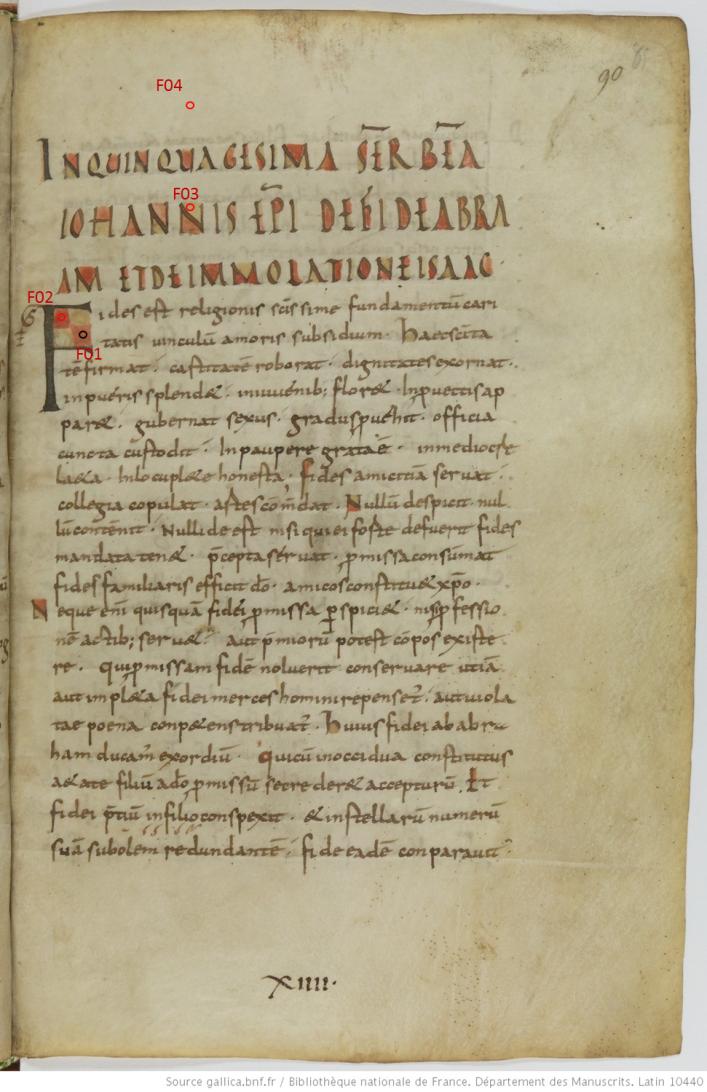 F04
90
IN QUINQUAGESIMA SER̄ BEĀ
F03
IOHANNIS EP̄I DE FIDE ABRA
AM ET DE IMMOLATIONE ISAAC
F02
Fides est religionis sc̄issime fundamentū cari
F01
tatis vinculū amoris subsidium · Haec sc̄ita
tē firmat · castitatē roborat · dignitates exornat ·
in pueris splend& · in iuvenib; flor& · In pvectis ap
par& · gubernat sexus · gradus pvehit · officia
cuncta custodit · In paupere grata ē · in mediocre
l&a · In locupl&e honesta · fides amicitiā servat ·
collegia copulat · artes com̄dat · Nullū despicit · nul
lū contēnit · Nulli deest nisi qui ei forte defuerit fides
mandata ten& · p̄cepta servat · p̄missa consūmat
fides familiaris efficit dō · amicos constitu& xp̄o ·
Neque eni quisquā fidei p̄missa p̄spici& · nisi p̄fessio
nē actib; serv& · aut p̄miorū potest cōpos existe
re · qui p̄missam fidē noluerit conservare utiā
aut impl&a fidei merces homini repenset̄ · aut viola
tae poena conp&ens tribuat̄ · Huius fidei ab abra
ham ducam̄ exordiū · Qui cū in occidua constitutus
a&ate filiū a dō p̄missū se crederet accepturū · Et
fidei p̄tiū in filio conspexit · & in stellarū numerū
suā subolem redundantē · fide eadē conparavit ·
XIIII·
Source gallica.bnf.fr / Bibliothèque nationale de France. Département des Manuscrits. Latin 10440